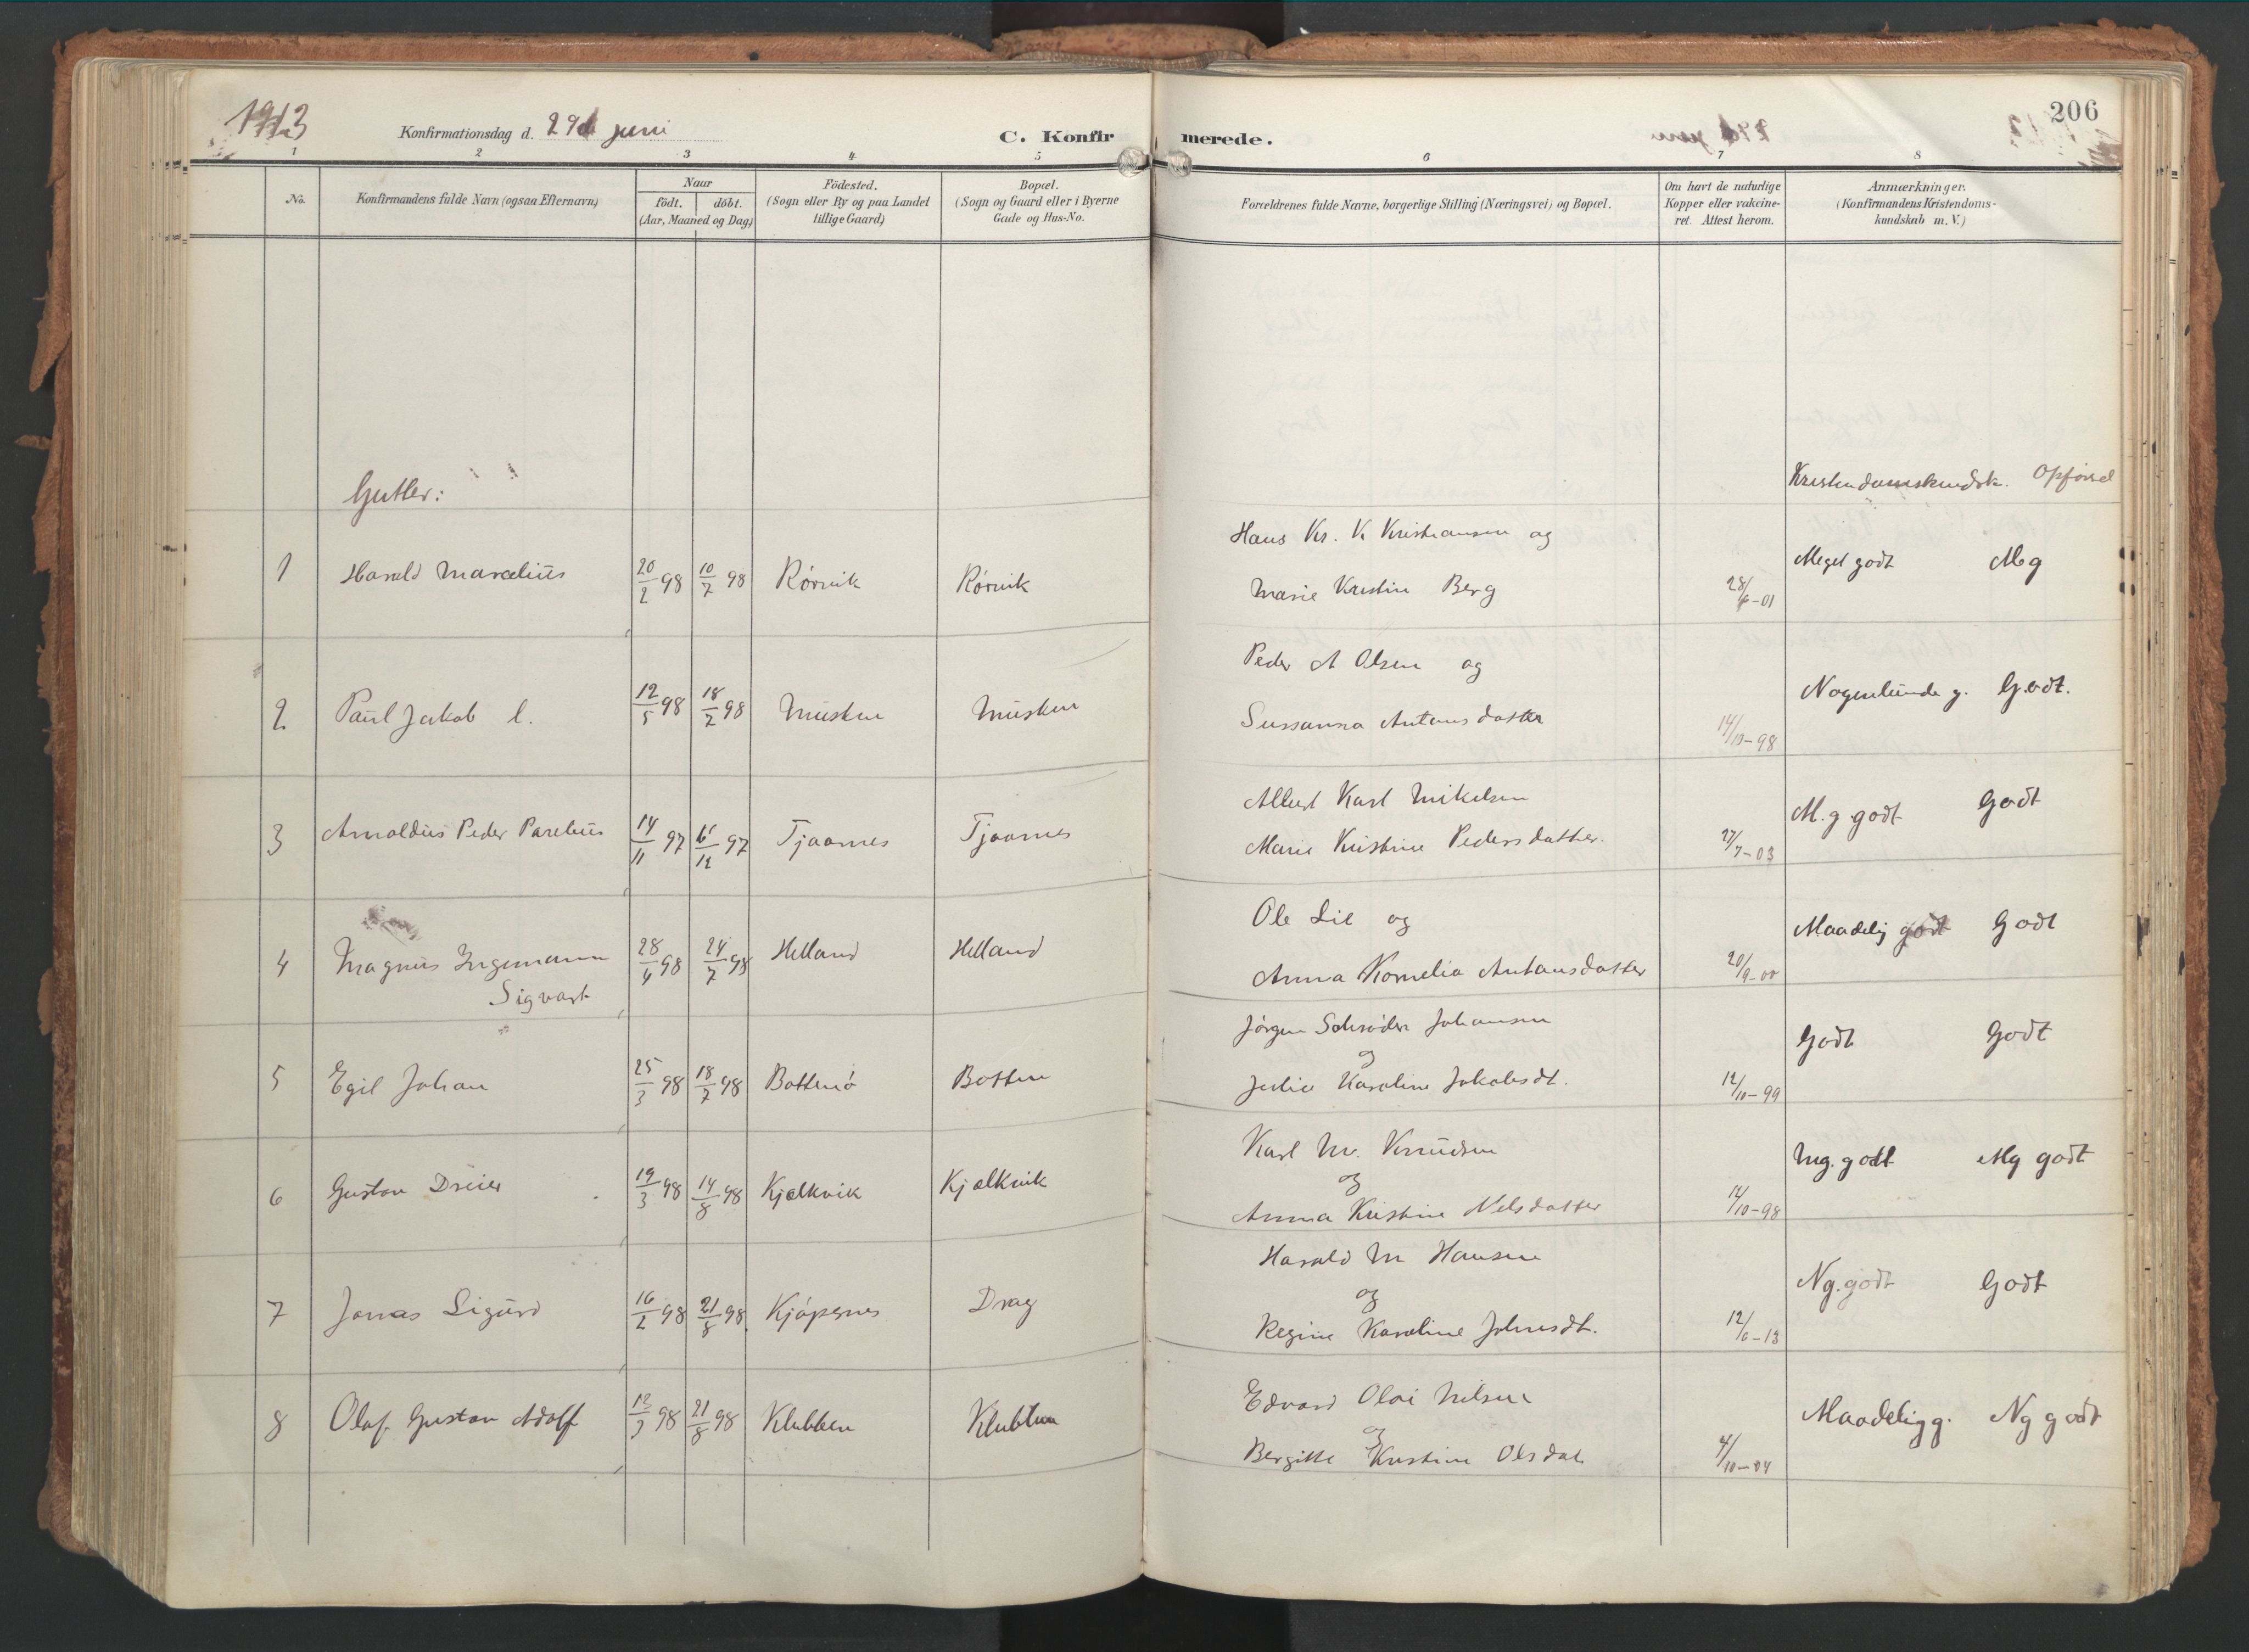 1913
Konfirmationsdag d. 29de juni
C. Konfirmerede.
206
1 2 3 4 5 6 7 8
No.
Konfirmandens fulde Navn (ogsaa Efternavn)
Naar
födt. döbt.
(Aar, Maaned og Dag)
Födested.
(Sogn eller By og paa Landet
tillige Gaard)
Bopæl.
(Sogn og Gaard eller i Byerne
Gade og Hus-No.
Forældrenes fulde Navne, borgerlige Stilling (Næringsvei) og Bopæl.
Om havt de naturlige
Kopper eller vakcine-
ret. Attest herom.
Anmærkninger.
(Konfirmandens Kristendoms-
kundskab m. V.)
Gutter:
Kristendomskundsk. Opførsel
1 Harald Marelius 20/2 98 10/7 98 Rørvik Rørvik
Hans Kr. K Kristiansen og
Marie Kristine Berg
28/6-01 Meget godt Mg
2 Paul Jakob l. 12/5 98 18/7 98 Musken Musken
Peder A Olsen og
Sussanna Antonsdatter
14/10-98 Nogenlunde g. Godt.
3 Arnoldus Peder Parelius 14/11 97 15/12 97 Tjaarnes Tjaarnes
Albert Karl Mikelsen
Marie Kristine Pedersdatter.
27/7-03 M.g godt Godt
4 Magnus Ingemann
Sigvart
28/4 98 24/7 98 Helland Helland
Ole Lil og
Anna Kornelia Antonsdatter
20/9-00 Maadelig godt Godt
5 Egil Johan 25/3 98 18/7 98 Bottenø Botten
Jørgen Schrøder Johansen
og
Julie Karoline Jakobsdt.
12/10-99 Godt Godt
6 Gustav Dreier 19/3 98 14/8 98 Kjælkvik Kjælkvik
Karl M. Knudsen
og
Anna Kristine Nelsdatter
14/10-98 Mg. godt Mg godt
7 Jonas Sigurd 16/2 98 21/8 98 Kjøpsnes Drag
Harald M Hansen
og
Regine Karoline Johnsdt.
12/6-13 Ng. godt Godt
8 Olaf Gustav Adolf 13/3 98 21/8 98 Klubben Klubben
Edvard Olai Nilsen
og
Bergitte Kristine Olsdat.
4/10-04 Maadelig g. Ng godt